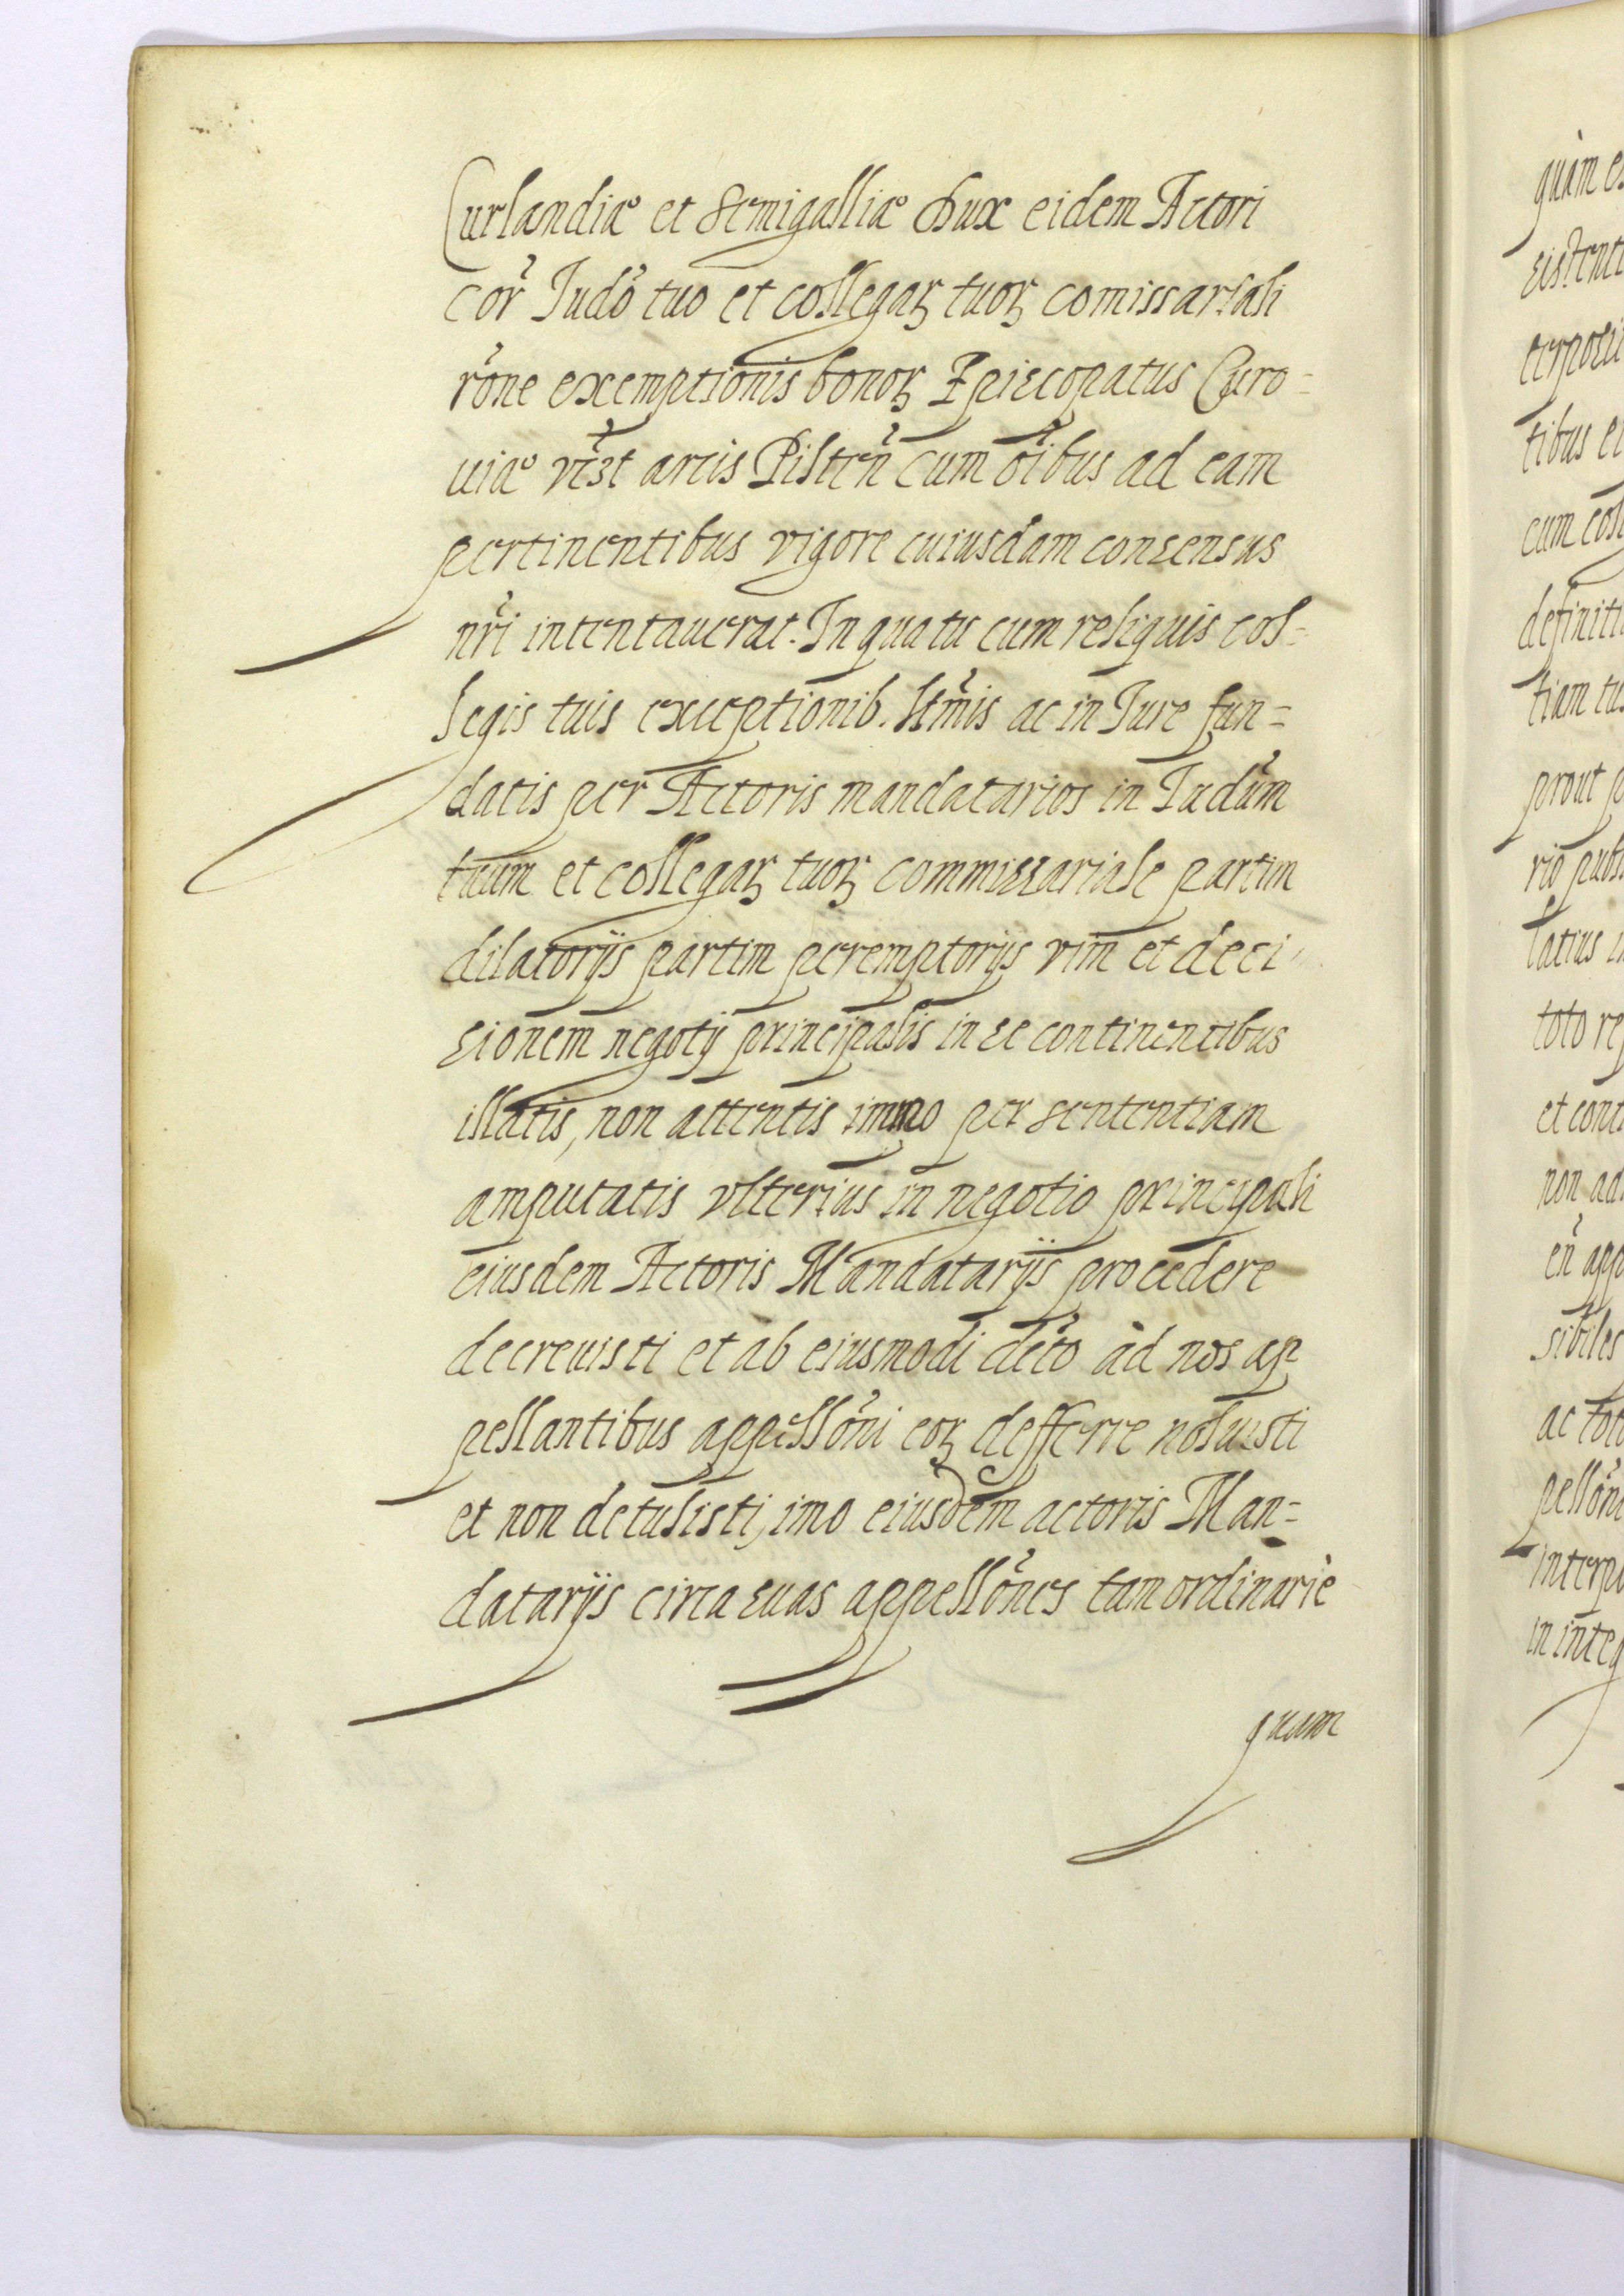 Curlandiæ et Semigalliæ Dux eidem Actori
cor̃ Iudõ tuo et collegaꝝ tuoꝝ comissariali
rõne exemptionis bonoꝝ Episcopatus Curo-
niæ arcis Pilten̄ cum oĩbus ad eam
pertinentibus vigore cuiusdam consensus
nr̃i intentauerat. In qua tu cum reliquis col-
legis tuis exceptionib. ltm̃is ac in Iure fun=
datis per Actoris mandatarios in Iudũm
tuum et collegaꝝ tuoꝝ commissariale partim
dilatorijs partim peremptorijs vim et deci-
sionem negotij principalis in se continentibus
illatis, non attentis immo per sententiam
amputatis vlterius in negotio principali
eiusdem Actoris Mandatarijs procedere
decreuisti et ab eiusmodi detõ ad nos ap
pellantibus appellõni eoꝝ defferre noluisti
et non detulisti, imo eiusdem actoris Man=
datarijs circa suas appellõnes tam ordinariè
quam
quàm
sistent
terposi
tibus
cum col
definiti
tiam tu
prout
rio publ
latius in
toto
et cont
non ad
en̄ app
sibiles
ac toto
pellõni
interp
in integ